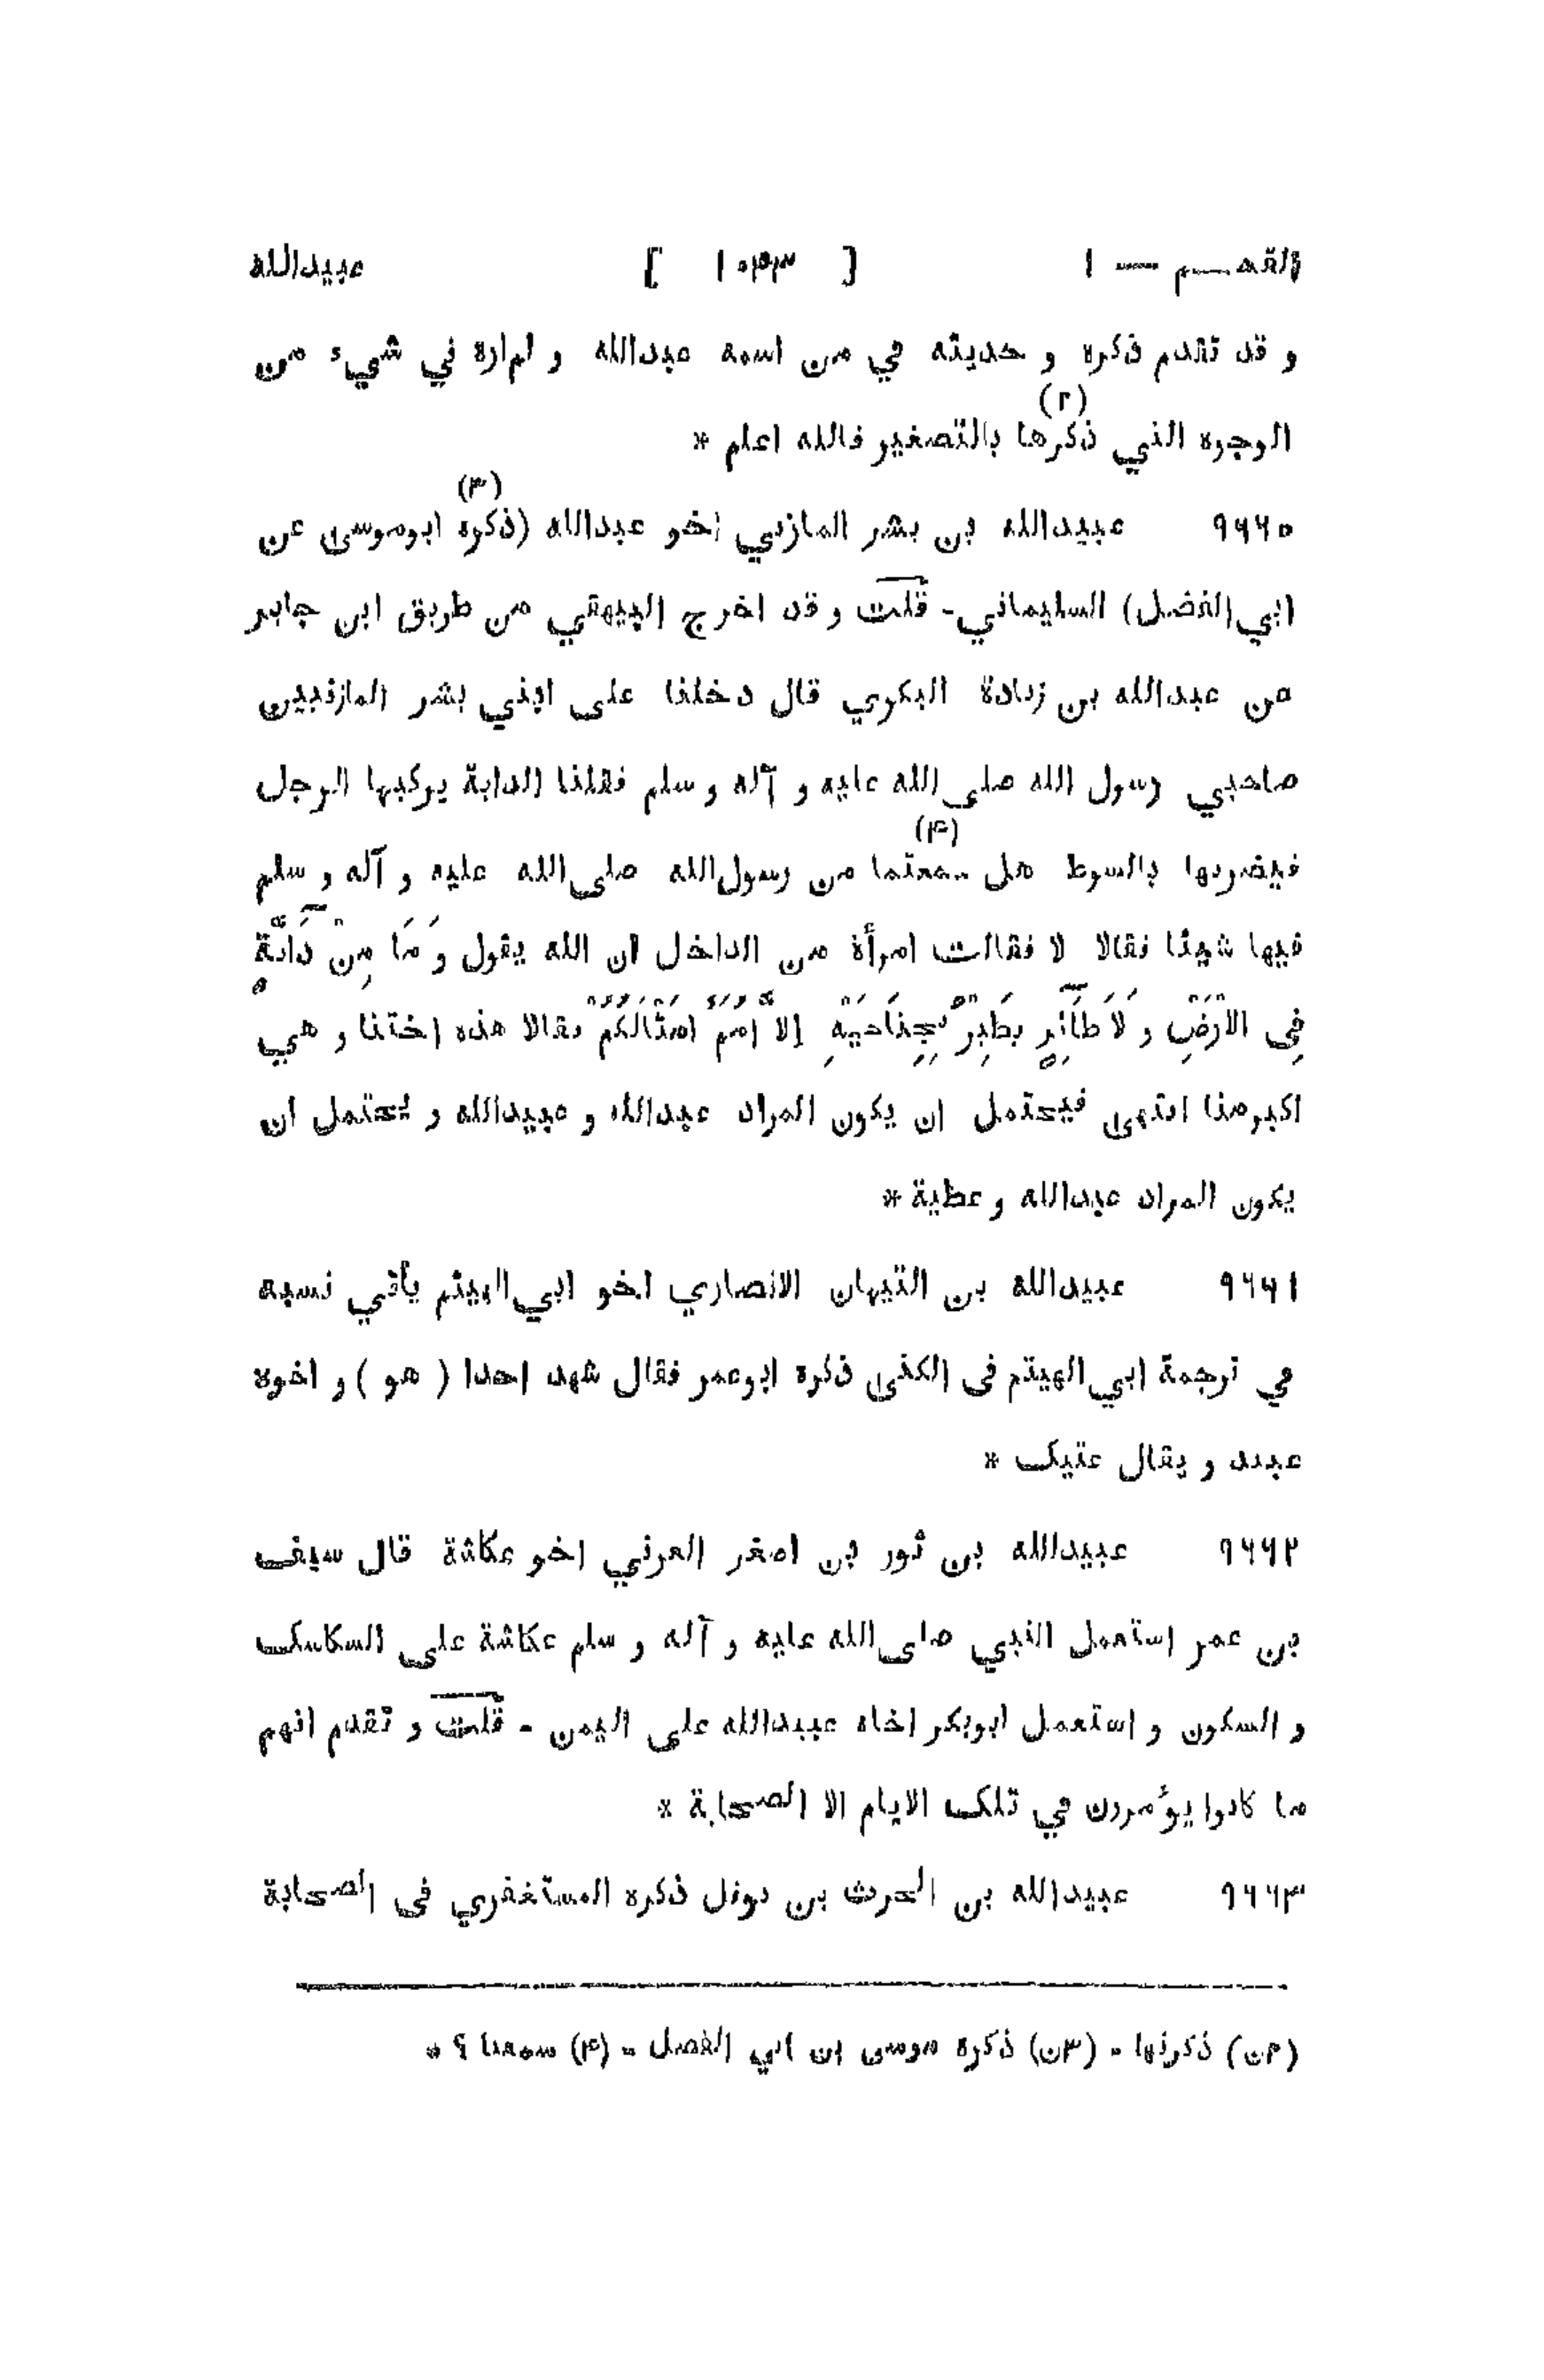 القسم — ١ [ ١٠٤٣ ] عبيدالله
و قد تقدم ذكره و حديثه في من اسمه عبدالله و لم اره في شيء من
الوجوه الذي ذكرها (٢) بالتصغير فالله اعلم *
٩٦٦٠ عبيدالله بن بشر المازني اخو عبدالله (ذكره (٣) ابوموسى عن
ابي الفضل) السليماني - قلت و قد اخرج البيهقي من طريق ابن جابر
عن عبدالله بن زيادة البكري قال دخلنا على ابني بشر المازنيين
صاحبي رسول الله صلى الله عليه و آله و سلم فقلنا الدابة يركبها الرجل
فيضربها بالسوط هل سمعتما (۴) من رسول الله صلى الله عليه و آله و سلم
فيها شيئا فقالا لا فقالت امرأة من الداخل ان الله يقول وَ مَا مِنْ دَآبَّةٍ
فِى الْاَرْضِ وَ لَا طَآئِرٍ يَطِيْرُ بِجِنَاحَيْهِ اِلَّا اُمَمٌ اَمْثَالُكُمْ فقالا هذه اختنا و هي
اكبر منا انتهى فيحتمل ان يكون المراد عبدالله و عبيدالله و يحتمل ان
يكون المراد عبدالله و عطية *
٩٦٦١ عبيدالله بن التيهان الانصاري اخو ابي الهيثم يأتي نسبه
في ترجمة ابي الهيثم فى الكنى ذكره ابوعمر فقال شهد احدا ( هو ) و اخوه
عبيد و يقال عتيك *
٩٦٦٢ عبيدالله بن ثور بن اصغر العرني اخو عكاشة قال سيف
بن عمر استعمل النبي صلى الله عليه و آله و سلم عكاشة على السكاسك
و السكون و استعمل ابوبكر اخاه عبيدالله على اليمن - قلت و تقدم انهم
ما كانوا يؤمرون في تلك الايام الا الصحابة *
٩٦٦٣ عبيدالله بن الحرث بن نوفل ذكره المستغفري فى الصحابة
(٢ن) ذكرنها - (٣ن) ذكره موسى ان ابي الفضل - (۴) سمعنا ؟ *